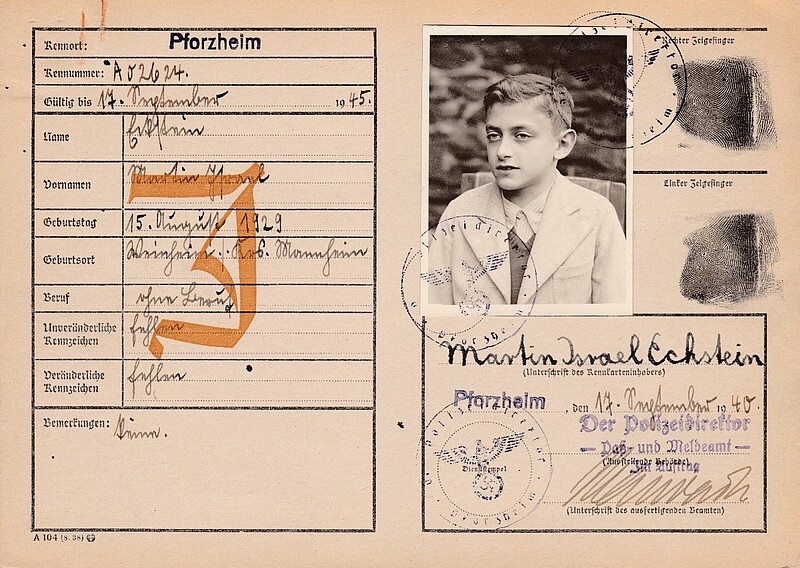 Kennort: Pforzheim
Kennummer: A 02624.
Gültig bis 17. September 1945.
Name Eckstein
Vornamen Martin Israel
Geburtstag 15. August 1929
Geburtsort Weinheim / Krs. Mannheim
Beruf ohne Beruf
Unveränderliche Kennzeichen fehlen
Veränderliche Kennzeichen fehlen
Bemerkungen: keine.
J
A 104 (8. 38)
Rechter Zeigefinger
Linker Zeigefinger
Martin Israel Eckstein
(Unterschrift des Kennkarteninhabers)
Pforzheim, den 17. September 1940.
Der Polizeidirektor
— Paß- und Meldeamt —
(Ausstellende Behörde)
Im Auftrag
Dienststempel
(Unterschrift des ausfertigenden Beamten)